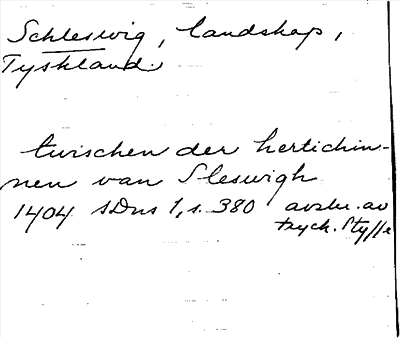 Schleswig, landskap,
Tyskland.
twischen der hertichin-
nen van Sleswigh
1404 SDns 1, s. 380 avskr. av
tryck. Styffe